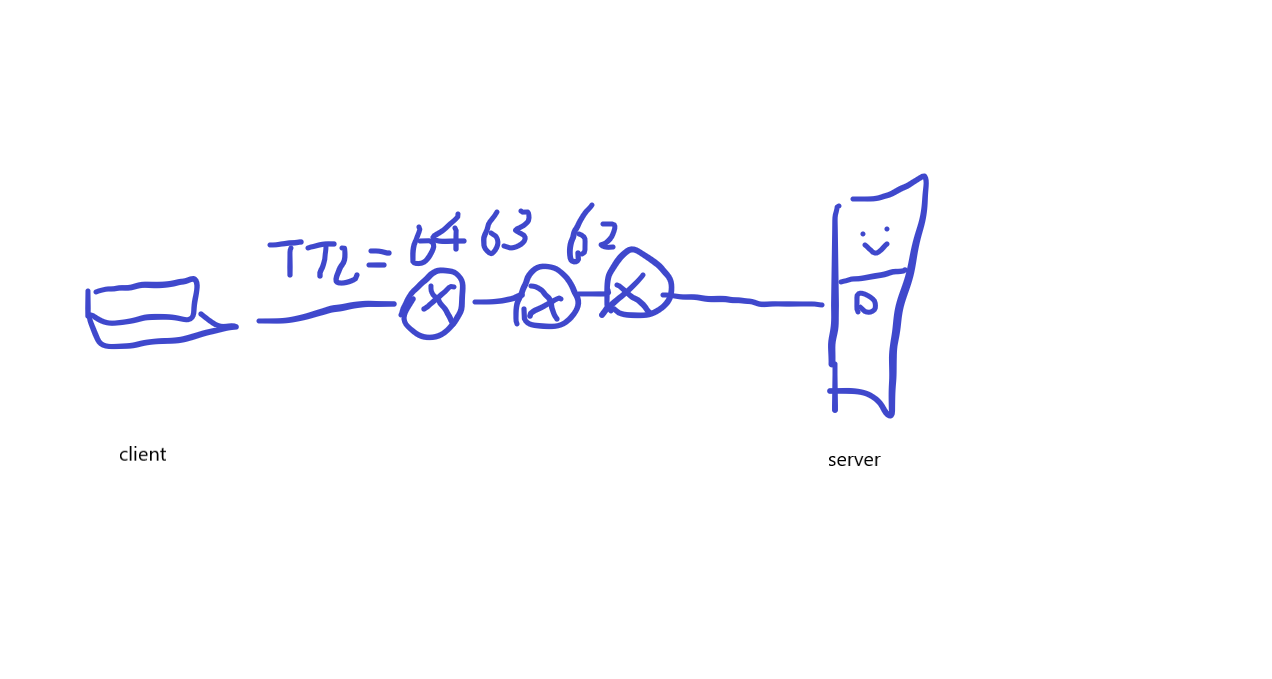 TTL = 64 63 62
client
server